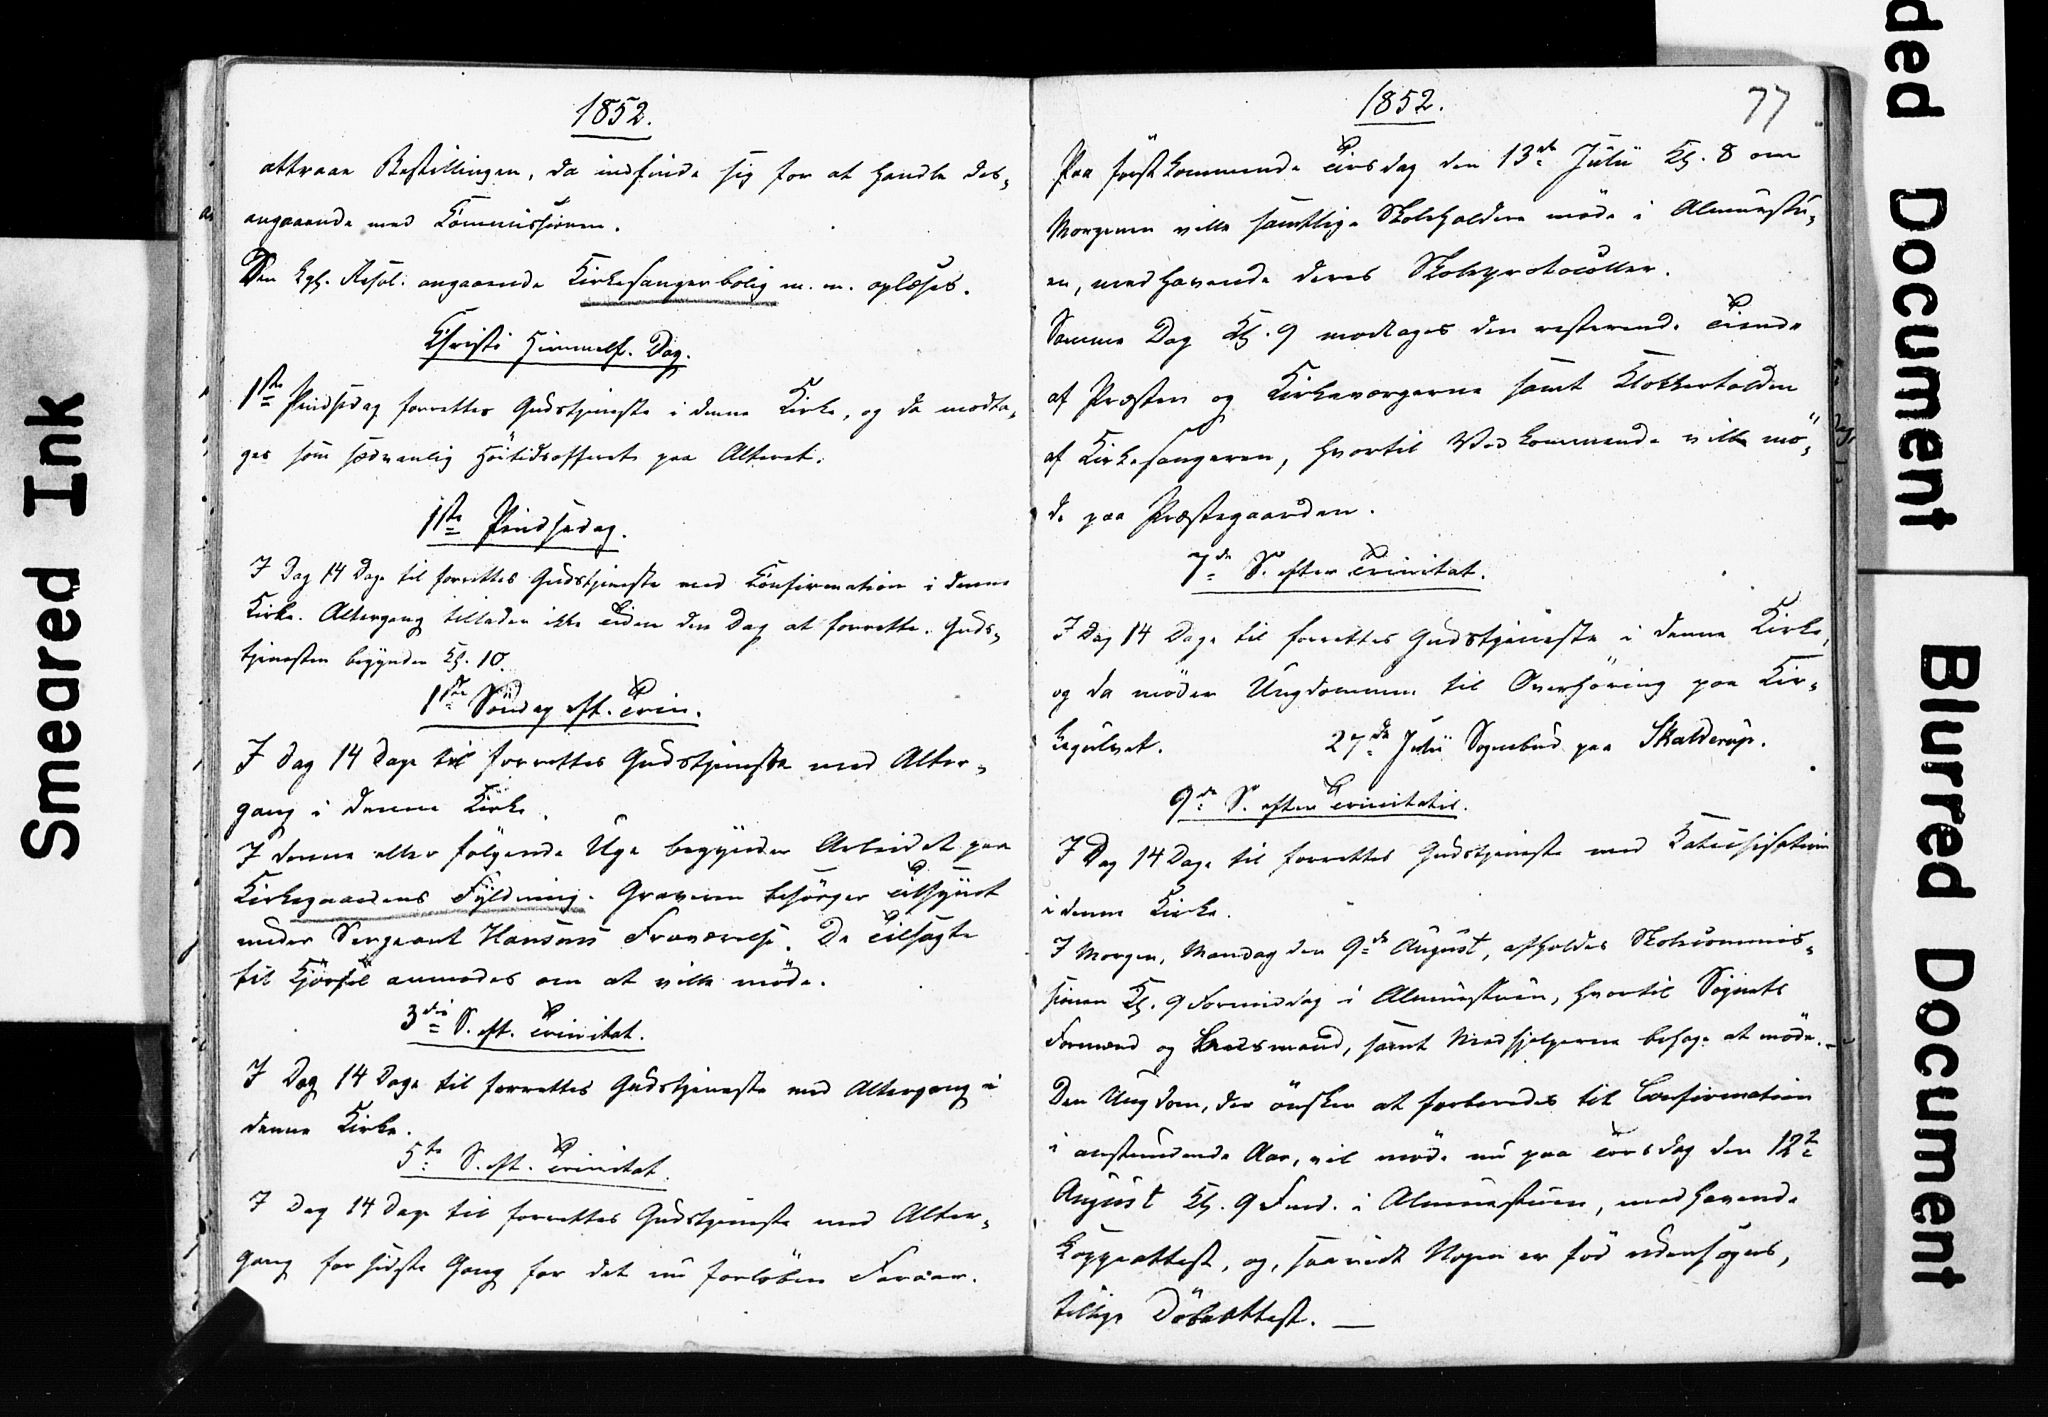 1852.
attraae Bestillingen, da indfinde sig for at handle des-
angaaende med Commissionen.
Den kgl. Resol. angaaende Kirkesangerbolig m. m. oplæses.
Christi Himmelf. Dag.
1ste Pindsedag forrettes Gudstjeneste i denne Kirke, og da modta-
ges som sædvanlig Höitidsofferet paa Alteret.
1ste Pindsedag.
I Dag 14 Dage til forrettes Gudstjeneste med Confirmation i denne
Kirke. Altergang tillader ikke Tiden den Dag at forrette. Guds-
tjenesten begynder Kl. 10.
1ste Söndag eft. Trin.
I Dag 14 Dage til forrettes Gudstjeneste med Alter-
gang i denne Kirke.
I denne eller fölgende Uge begynder Arbeidet paa
Kirkegaardens Fyldning. Graveren besörger Tilsynet
under Sergeant Hansens Fraværelse. De Tilsagte
til Kjörsel anmodes om at ville möde.
3die S. eft. Trinitat.
I Dag 14 Dage til forrettes Gudstjeneste med Altergang i
denne Kirke.
5te S. eft. Trinitat.
I Dag 14 Dage til forrettes Gudstjeneste med Alter-
gang for sidste Gang for det nu forlöbne Foraar.
1852.
77
Paa förstkommende Tirsdag den 13de Julii Kl. 8 om
Morgenen ville samtlige Skoleholdere möde i Almuestu-
en, medhavende deres Skoleprotocoller.
Samme Dag Kl. 9 modtages den resterende Tiende
af Præsten og Kirkeværgerne samt Klokkertolden
af Kirkesangeren, hvortil Vedkommende ville mö-
de paa Præstegaarden.
7de S. efter Trinitat.
I Dag 14 Dage til forrettes Gudstjeneste i denne Kirke,
og da möder Ungdommen til Overhöring paa Kir-
kegulvet.
27de Julii Sognebud paa Skalderup.
9de S. efter Trinitatis.
I Dag 14 Dage til forrettes Gudstjeneste med Katechisation
i denne Kirke.
I Morgen, Mandag den 9de August, afholdes Skolecommis-
sionen Kl. 9 Formiddag i Almuestuen, hvortil Sognets
Formænd og Lensmand, samt Medhjelperne behage at möde. -
Den Ungdom, der önsker at forberedes til Confirmation
i anstundende Aar, vil möde nu paa Torsdag den 12te
August Kl. 9 Fmd. i Almuestuen, medhavende
Koppeattest, og, saavidt Nogen er föd udensogns,
tillige Döbeattest. —
Smeared Ink
ded Document
Blurred Document